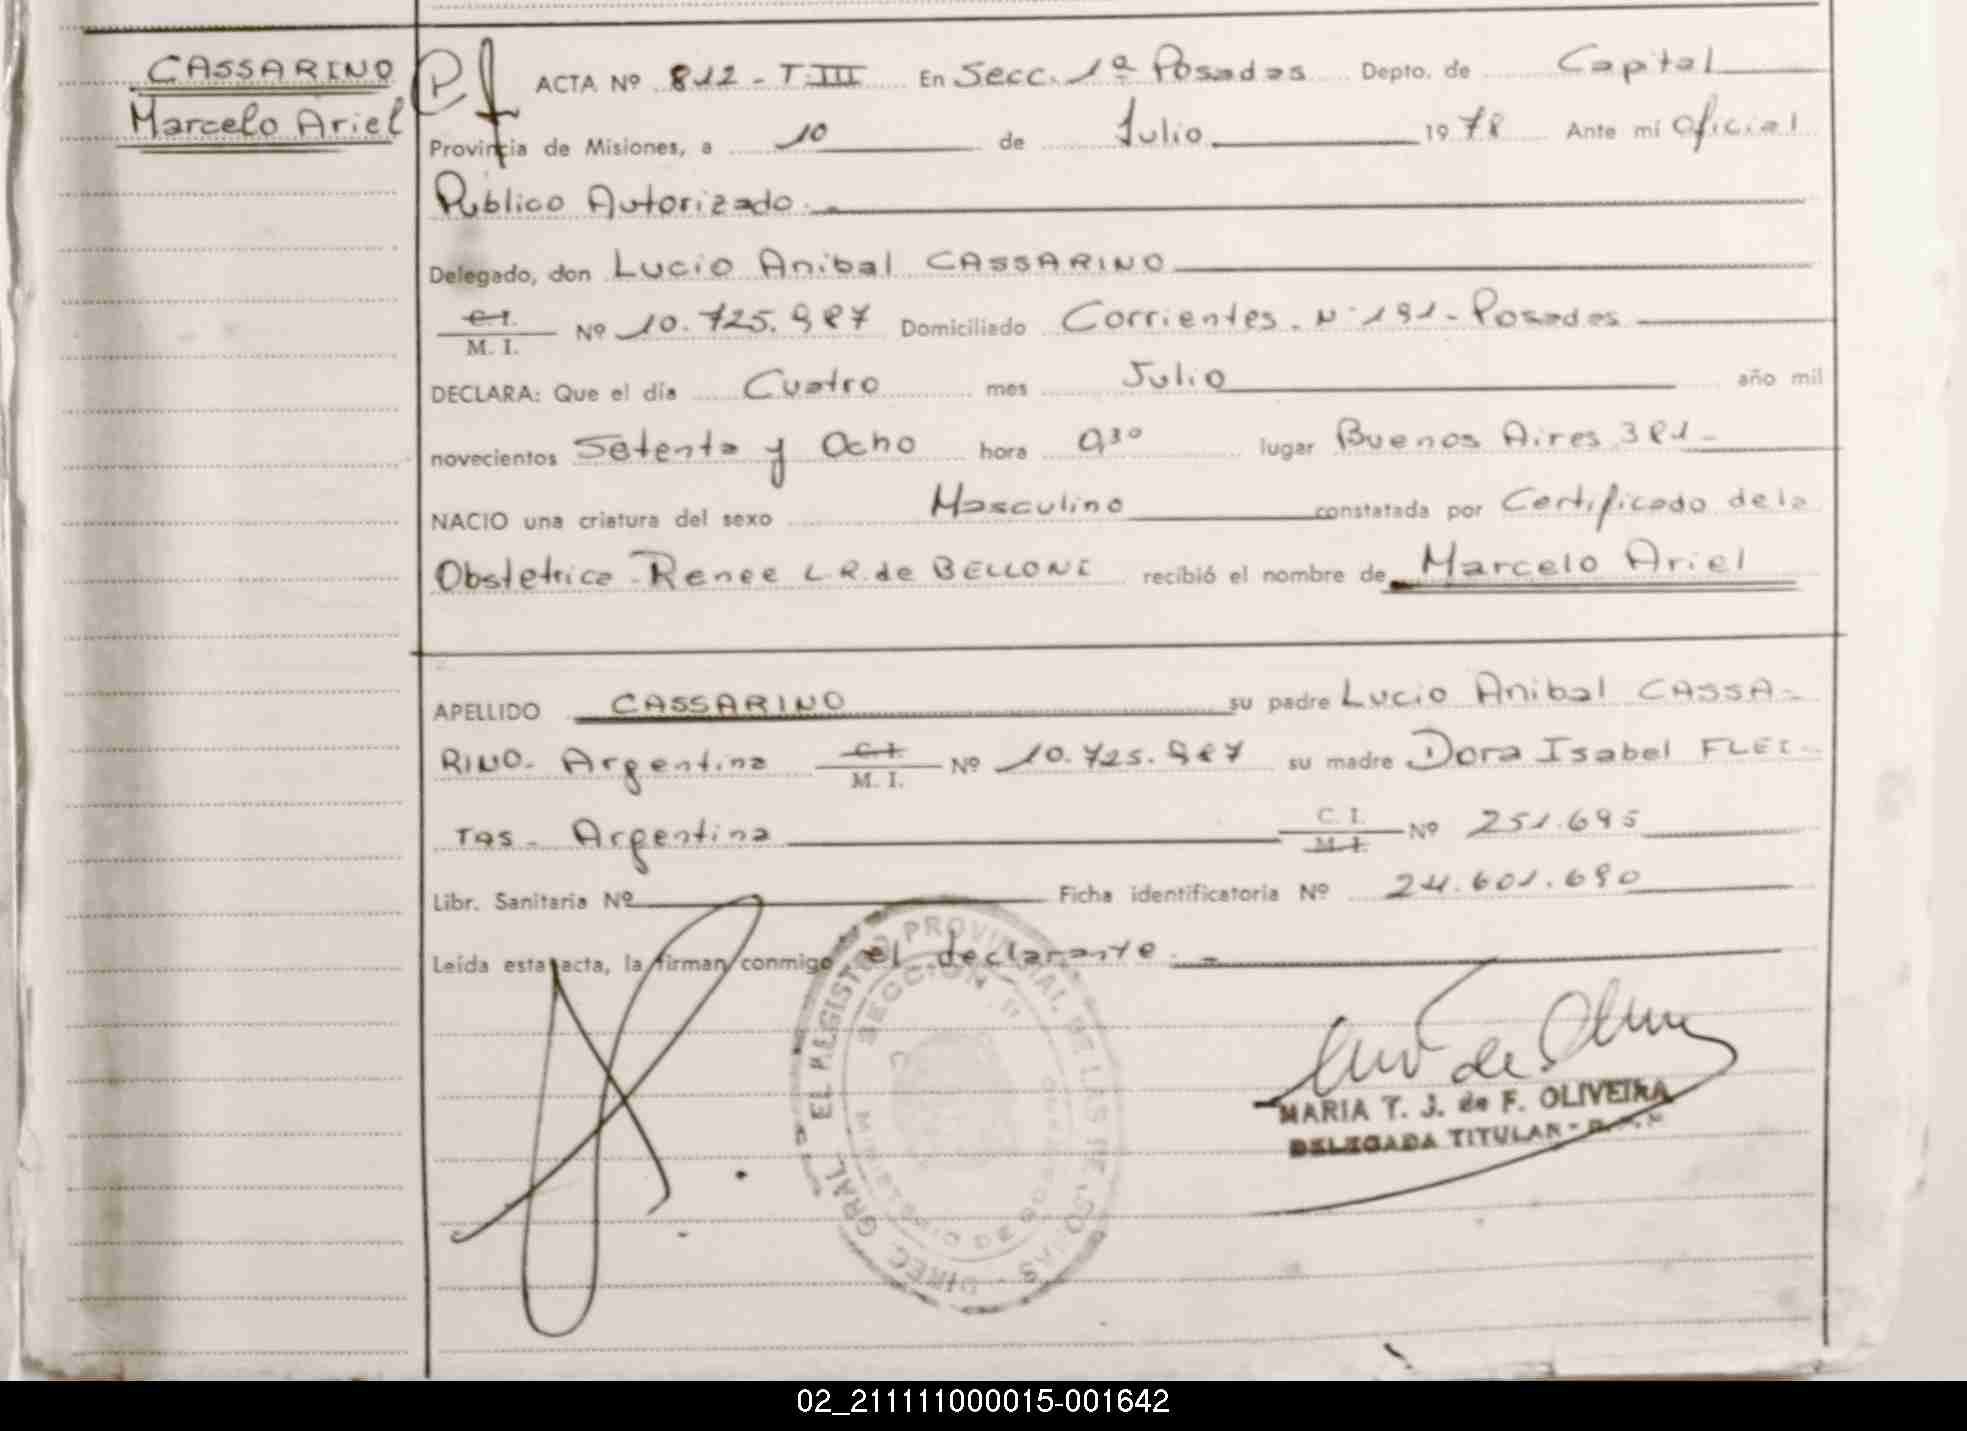 CASSARINO
Marcelo Ariel
ACTA Nº 812 - T. III En Secc. 1ª Posadas Depto. de Capital
Provincia de Misiones, a 10 de Julio 1978 Ante mí Oficial
Público Autorizado.-
Delegado, don Lucio Anibal CASSARINO
C.I. M. I. Nº 10.725.987 Domiciliado Corrientes. Nº 191 - Posadas
DECLARA: Que el día Cuatro mes Julio año mil
novecientos Setenta y Ocho hora 9³⁰ lugar Buenos Aires 381-
NACIO una criatura del sexo Masculino constatada por Certificado de la
Obstetrica - Renee L.R. de BELLONI recibió el nombre de Marcelo Ariel
APELLIDO CASSARINO su padre Lucio Anibal CASSA-
RINO. Argentina C.I. M. I. Nº 10.725.987 su madre Dora Isabel FLEI-
TAS - Argentina C. I. M. I. Nº 251.695
Libr. Sanitaria Nº Ficha identificatoria Nº 24.601.690
Leída esta acta, la firman conmigo el declarante.-
DIREC. GRAL. EL REGISTRO PROVINCIAL DE LAS PERSONAS
SECCION 1ª
MINISTERIO DE GOBIERNO
MARIA T. J. de F. OLIVEIRA
DELEGADA TITULAR -
02_211111000015-001642